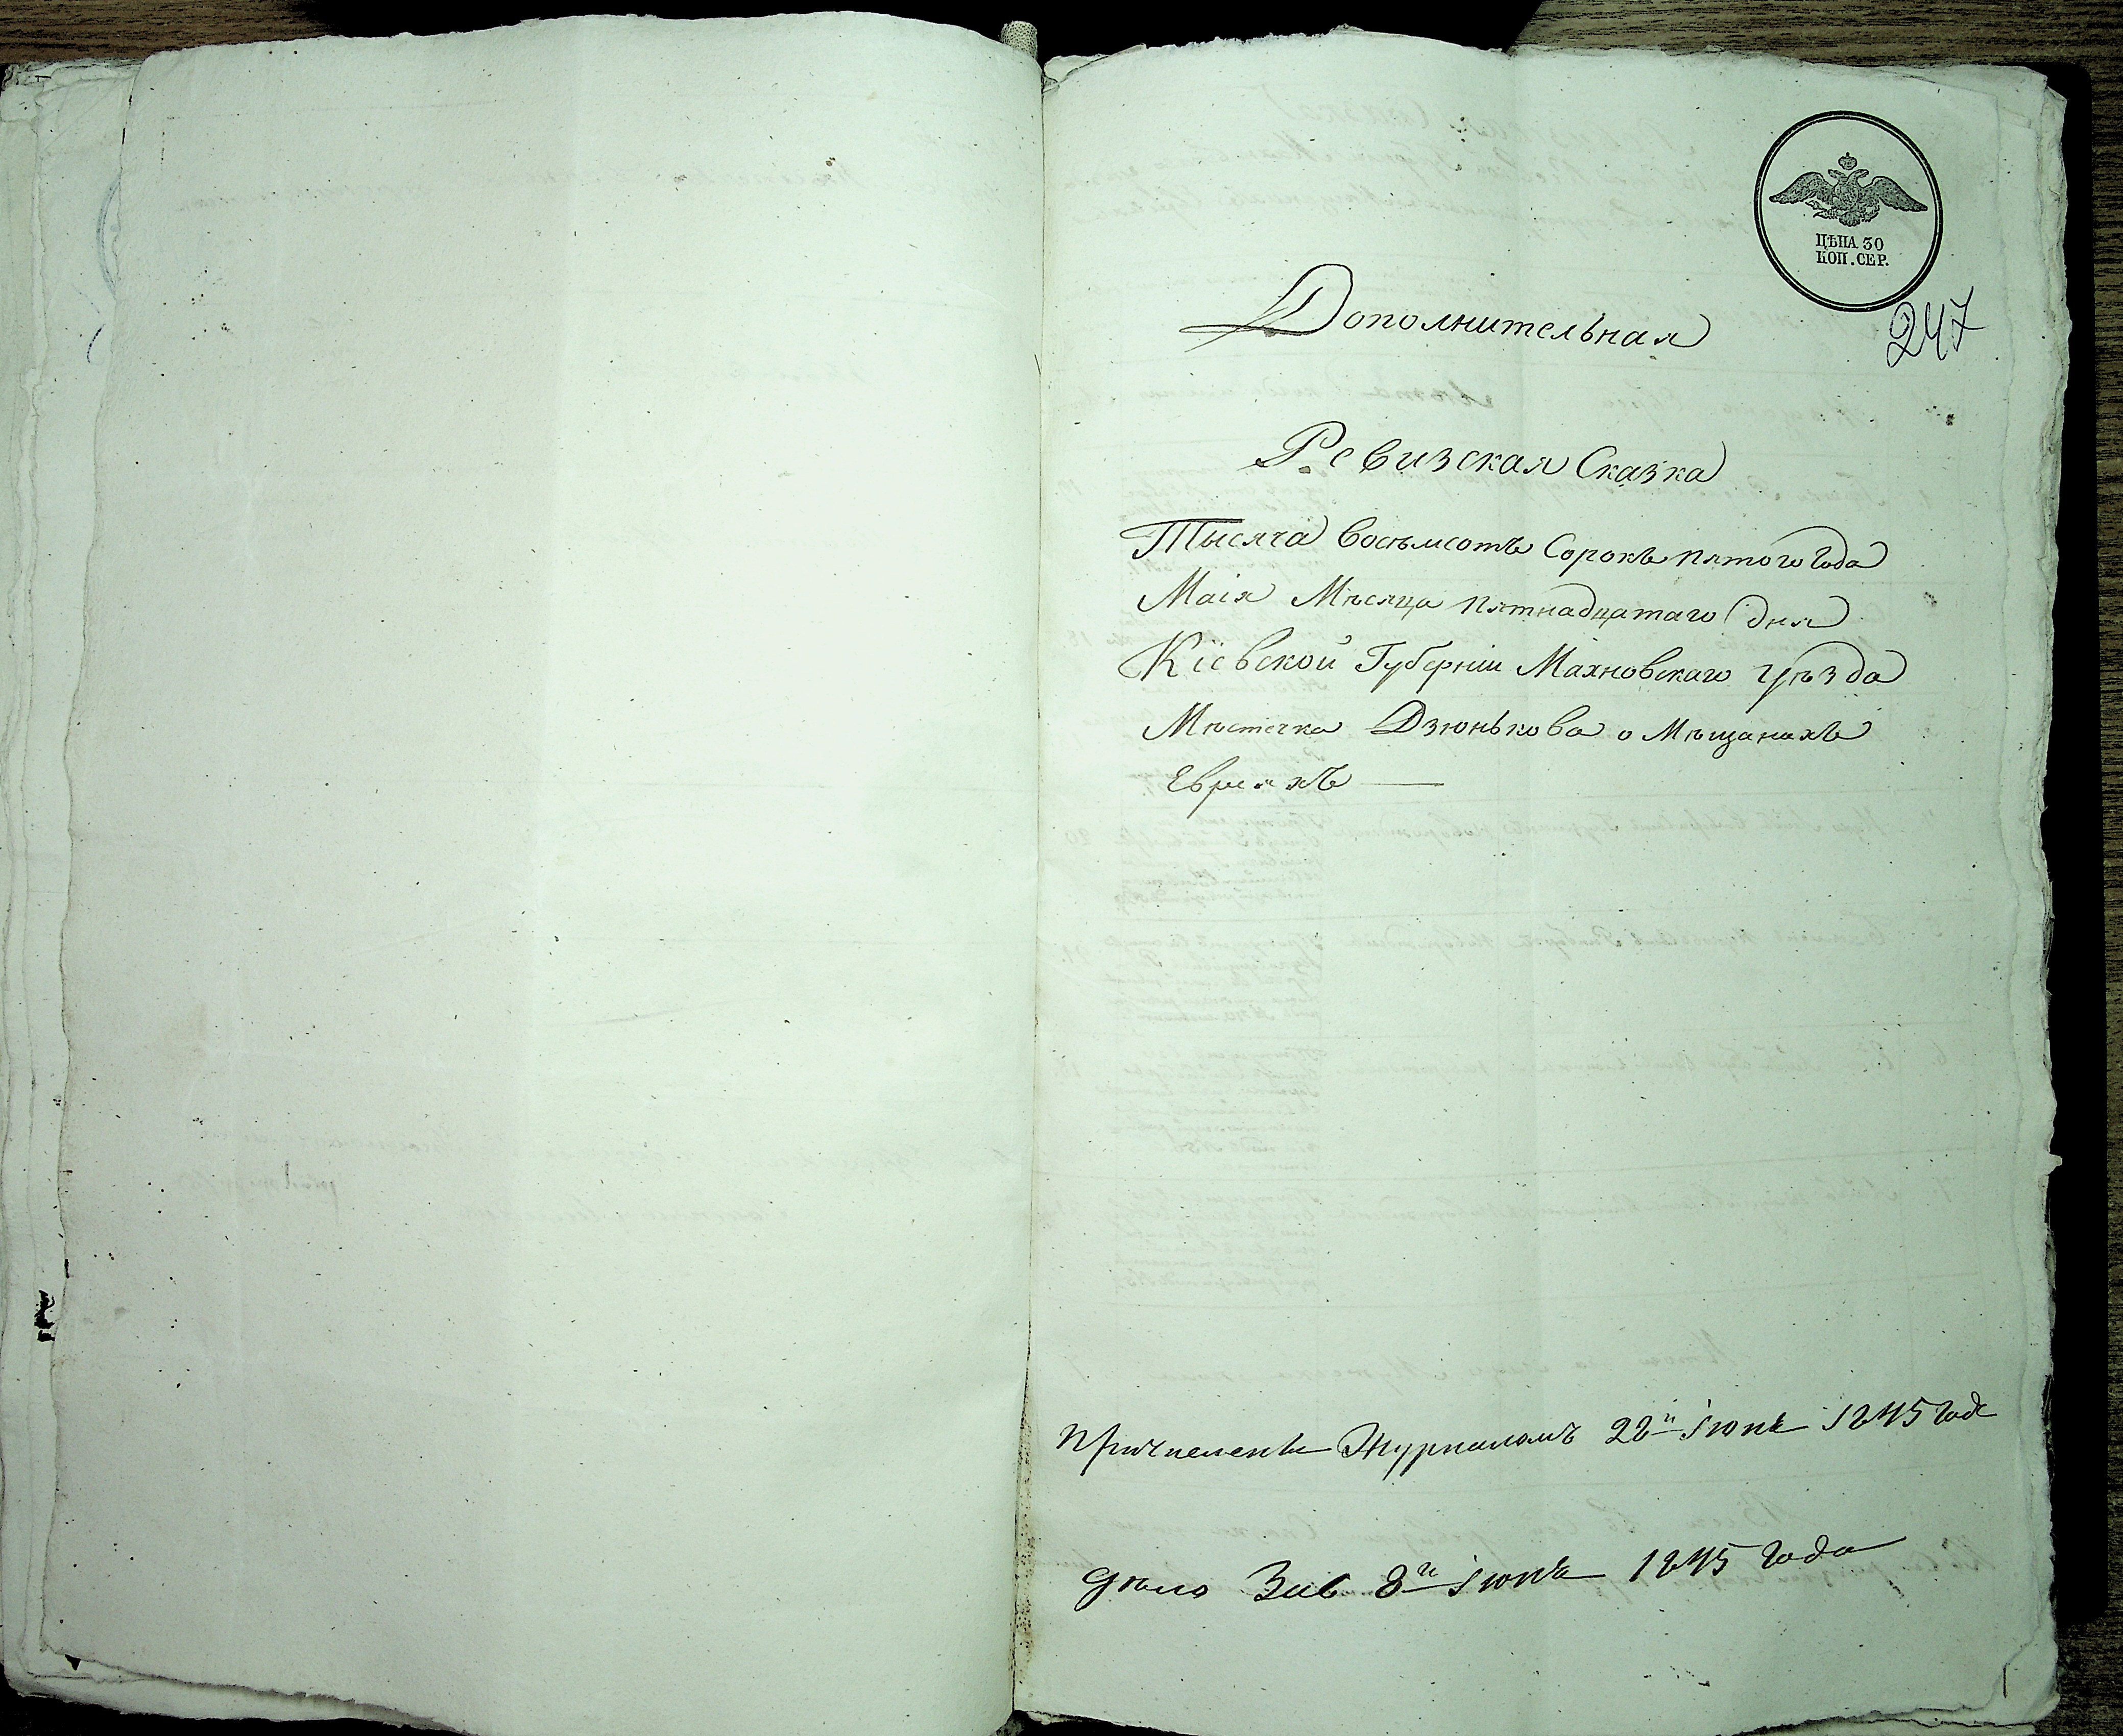 ЦѢНА 30
КОП. СЕР.
247
Дополнительная
Ревизская Сказка
Тысяча восемьсотъ Сорокъ пятого года
Маія Мѣсяца пятнадцатаго дня
Кіевской Губерніи Махновскаго Уѣзда
Мѣстечка Дзюнькова о Мѣщанахъ
Евреяхъ —
Причислены Журналомъ 22 Іюня 1845 года
Дѣло 8 Іюня 1845 года